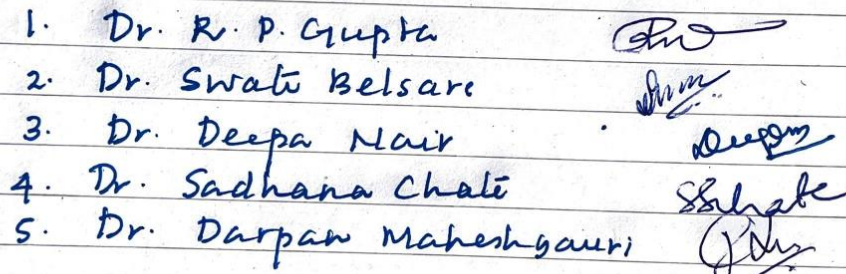 1. Dr. R. P. Gupta
2. Dr. Swati Belsare
3. Dr. Deepa Nair
4. Dr. Sadhana Chate SSChate
5. Dr. Darpan Maheshgauri